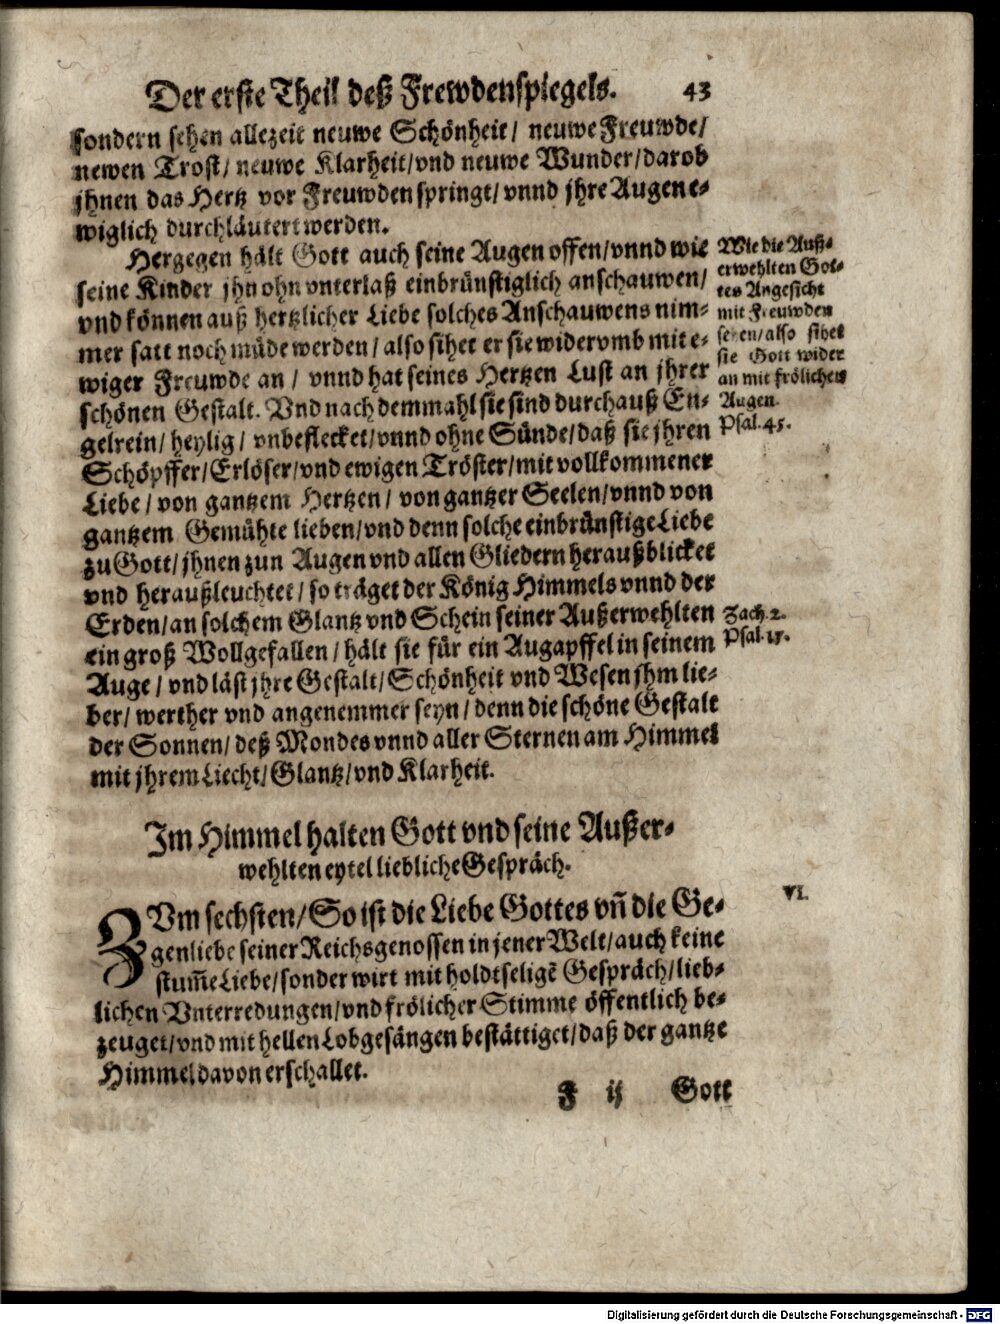 Der erste Theil deß Frewdenspiegels. 43
sondern sehen allezeit neuwe Schönheit/ neuwe Freuwde/
newen Trost/ neuwe Klarheit/ vnd neuwe Wunder/ darob
jhnen das Hertz vor Freuwden springt/ vnnd jhre Augen e-
wiglich durchläutert werden.
Hergegen hält Gott auch seine Augen offen/ vnnd wie
seine Kinder jhn ohn vnterlaß einbrünstiglich anschauwen/
vnd können auß hertzlicher Liebe solches Anschauwens nim-
mer satt noch müde werden/ also sihet er sie widervmb mit e-
wiger Freuwde an/ vnnd hat seines Hertzen Lust an jhrer
schönen Gestalt. Vnd nach demmahl sie sind durchauß En-
gelrein/ heylig/ vnbeflecket/ vnnd ohne Sünde/ daß sie jhren
Schöpffer/ Erlöser/ vnd ewigen Tröster/ mit vollkommener
Liebe/ von gantzem Hertzen/ von gantzer Seelen/ vnnd von
gantzem Gemühte lieben/ vnd denn solche einbrünstige Liebe
zu Gott/ jhnen zun Augen vnd allen Gliedern heraußblicket
vnd heraußleuchtet/ so träget der König Himmels vnnd der
Erden/ an solchem Glantz vnd Schein seiner Außerwehlten
ein groß Wollgefallen/ hält sie für ein Augapffel in seinem
Auge/ vnd läst jhre Gestalt/ Schönheit vnd Wesen jhm lie-
ber/ werther vnd angenemmer seyn/ denn die schöne Gestalt
der Sonnen/ deß Mondes vnnd aller Sternen am Himmel
mit jhrem Liecht/ Glantz/ vnd Klarheit.
Wie die Auß-
erwehlten Got-
tes Angesicht
mit Freuwden
sehen/ also sihet
sie Gott wider
an mit frölichen
Augen.
Psal. 45.
Zach. 2.
Psal. 17.
Im Himmel halten Gott vnd seine Außer-
wehlten eytel liebliche Gespräch.
VI.
ZVm sechsten/ So ist die Liebe Gottes vñ die Ge-
genliebe seiner Reichsgenossen in jener Welt/ auch keine
stum̃e Liebe/ sonder wirt mit holdtseligẽ Gespräch/ lieb-
lichen Vnterredungen/ vnd frölicher Stimme öffentlich be-
zeuget/ vnd mit hellen Lobgesängen bestättiget/ daß der gantze
Himmel davon erschallet.
F ij Gott
Digitalisierung gefördert durch die Deutsche Forschungsgemeinschaft - DFG